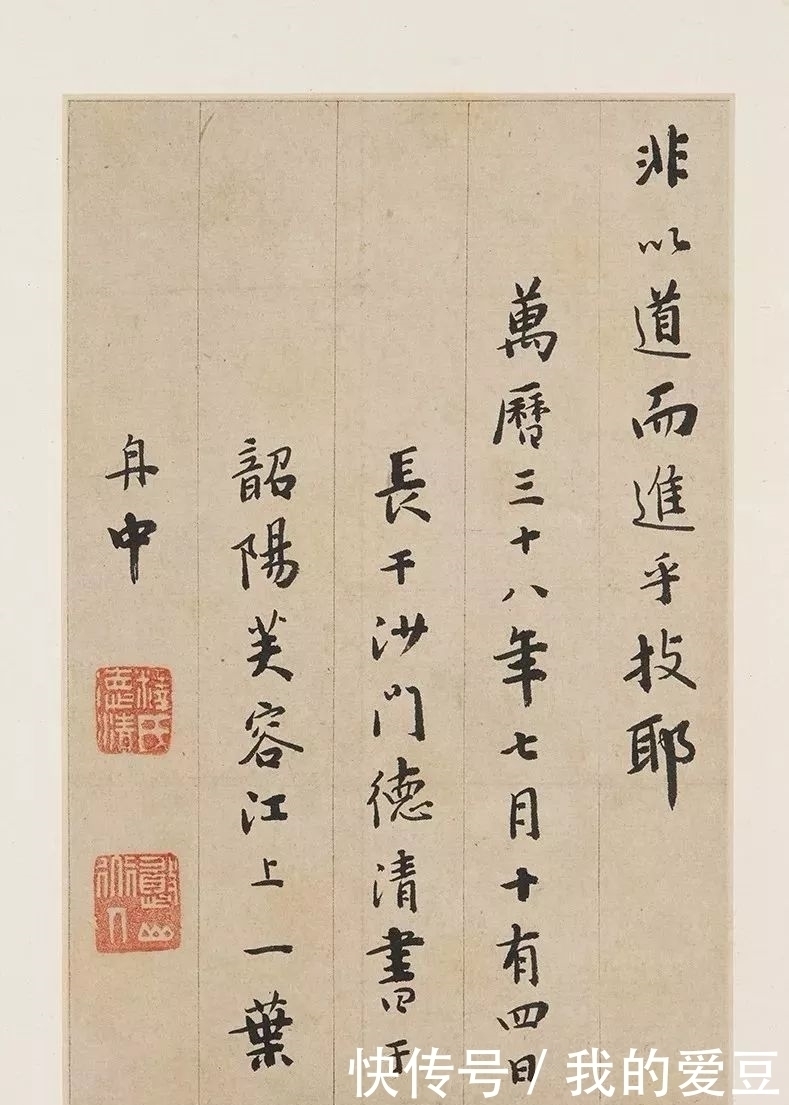 非以道而進乎技耶
萬曆三十八年七月十有四日
長干沙門德清書于
韶陽芙容江上一葉
舟中
快传号/我的爱豆